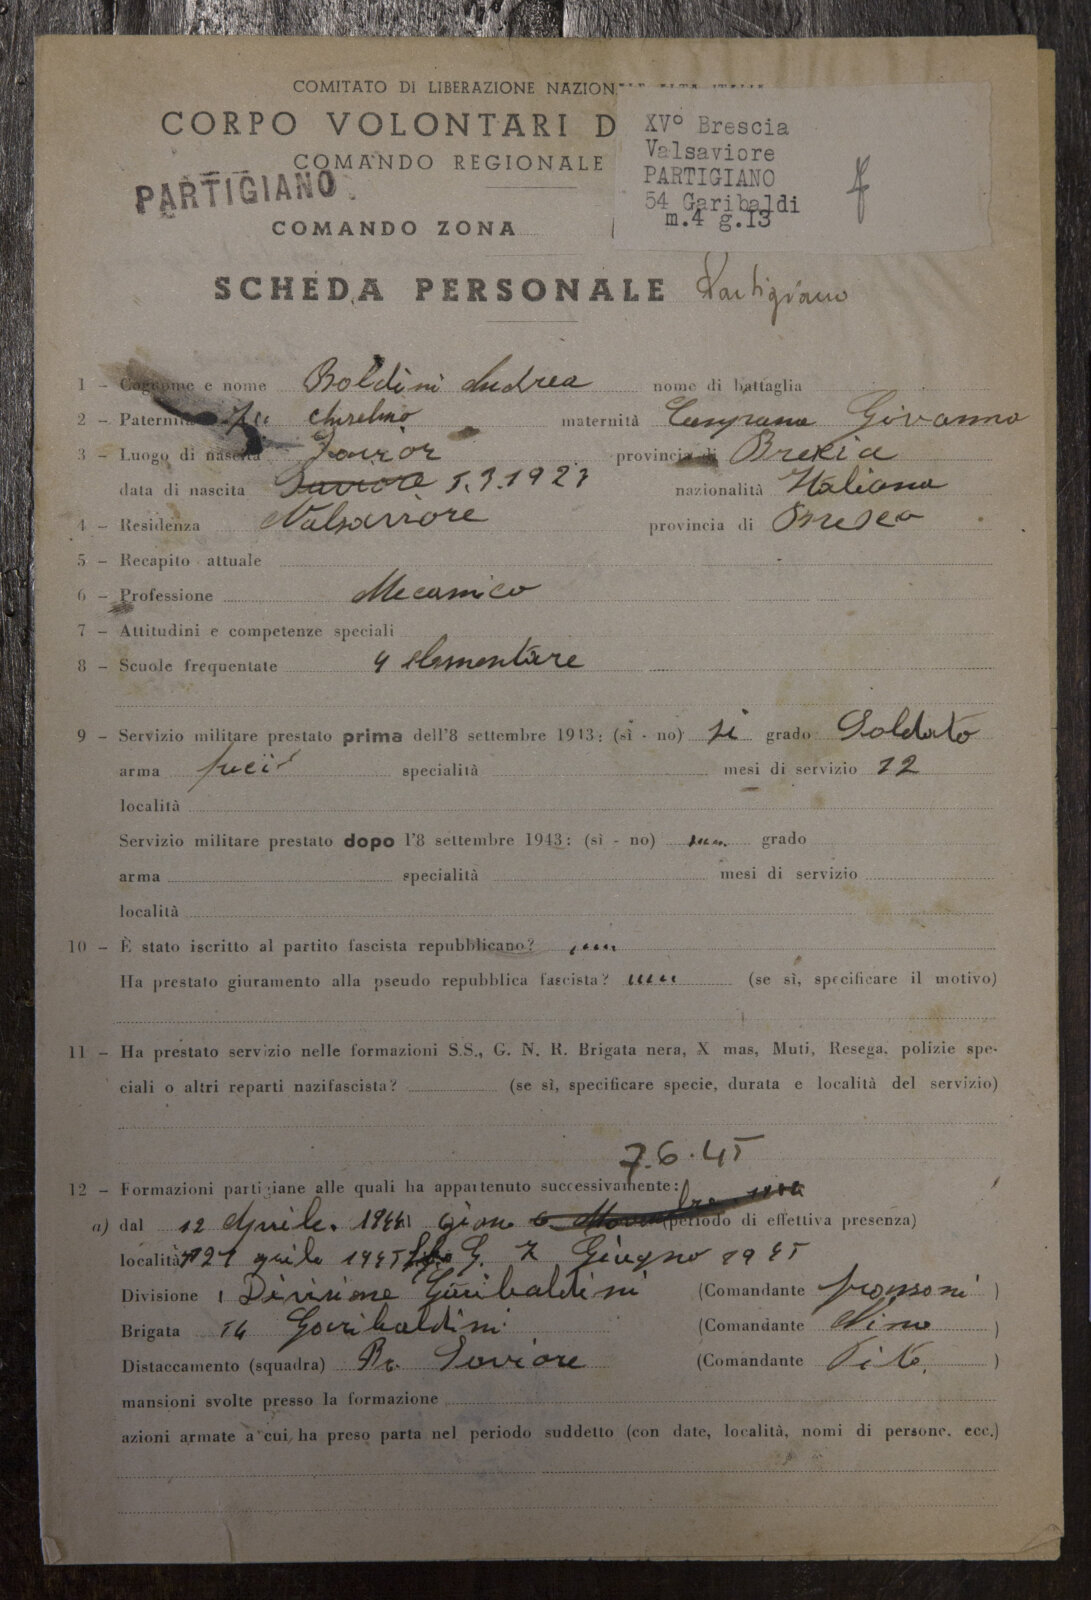 COMITATO DI LIBERAZIONE NAZIONALE ALTA ITALIA
CORPO VOLONTARI D
COMANDO REGIONALE
XV° Brescia
Valsaviore
PARTIGIANO
54 Garibaldi
m.4 g.13
PARTIGIANO
COMANDO ZONA
SCHEDA PERSONALE Partigiano
1 - Cognome e nome Boldini Andrea nome di battaglia
2 - Paternità fu maternità Givanna
3 - Luogo di nascita provincia di
data di nascita Saviore 5.3.1923 nazionalità Italiana
4 - Residenza Valsaviore provincia di
5 - Recapito attuale
6 - Professione Mecanico
7 - Attitudini e competenze speciali
8 - Scuole frequentate 4 elementare
9 - Servizio militare prestato prima dell'8 settembre 1943: (sì - no) si grado Soldato
arma specialità mesi di servizio 12
località
Servizio militare prestato dopo l'8 settembre 1943: (sì - no) grado
arma specialità mesi di servizio
località
10 - È stato iscritto al partito fascista repubblicano?
Ha prestato giuramento alla pseudo repubblica fascista? (se sì, specificare il motivo)
11 - Ha prestato servizio nelle formazioni S.S., G. N. R. Brigata nera, X mas, Muti, Resega, polizie spe-
ciali o altri reparti nazifascista? (se sì, specificare specie, durata e località del servizio)
7.6.45
12 - Formazioni partigiane alle quali ha appartenuto successivamente:
a) dal 12 Aprile 1944 (periodo di effettiva presenza)
località 7 Giugno 1945
Divisione Divisione Garibaldini (Comandante )
Brigata 54 Garibaldini (Comandante Nino )
Distaccamento (squadra) Saviore (Comandante Tito )
mansioni svolte presso la formazione
azioni armate a cui ha preso parta nel periodo suddetto (con date, località, nomi di persone, ecc.)